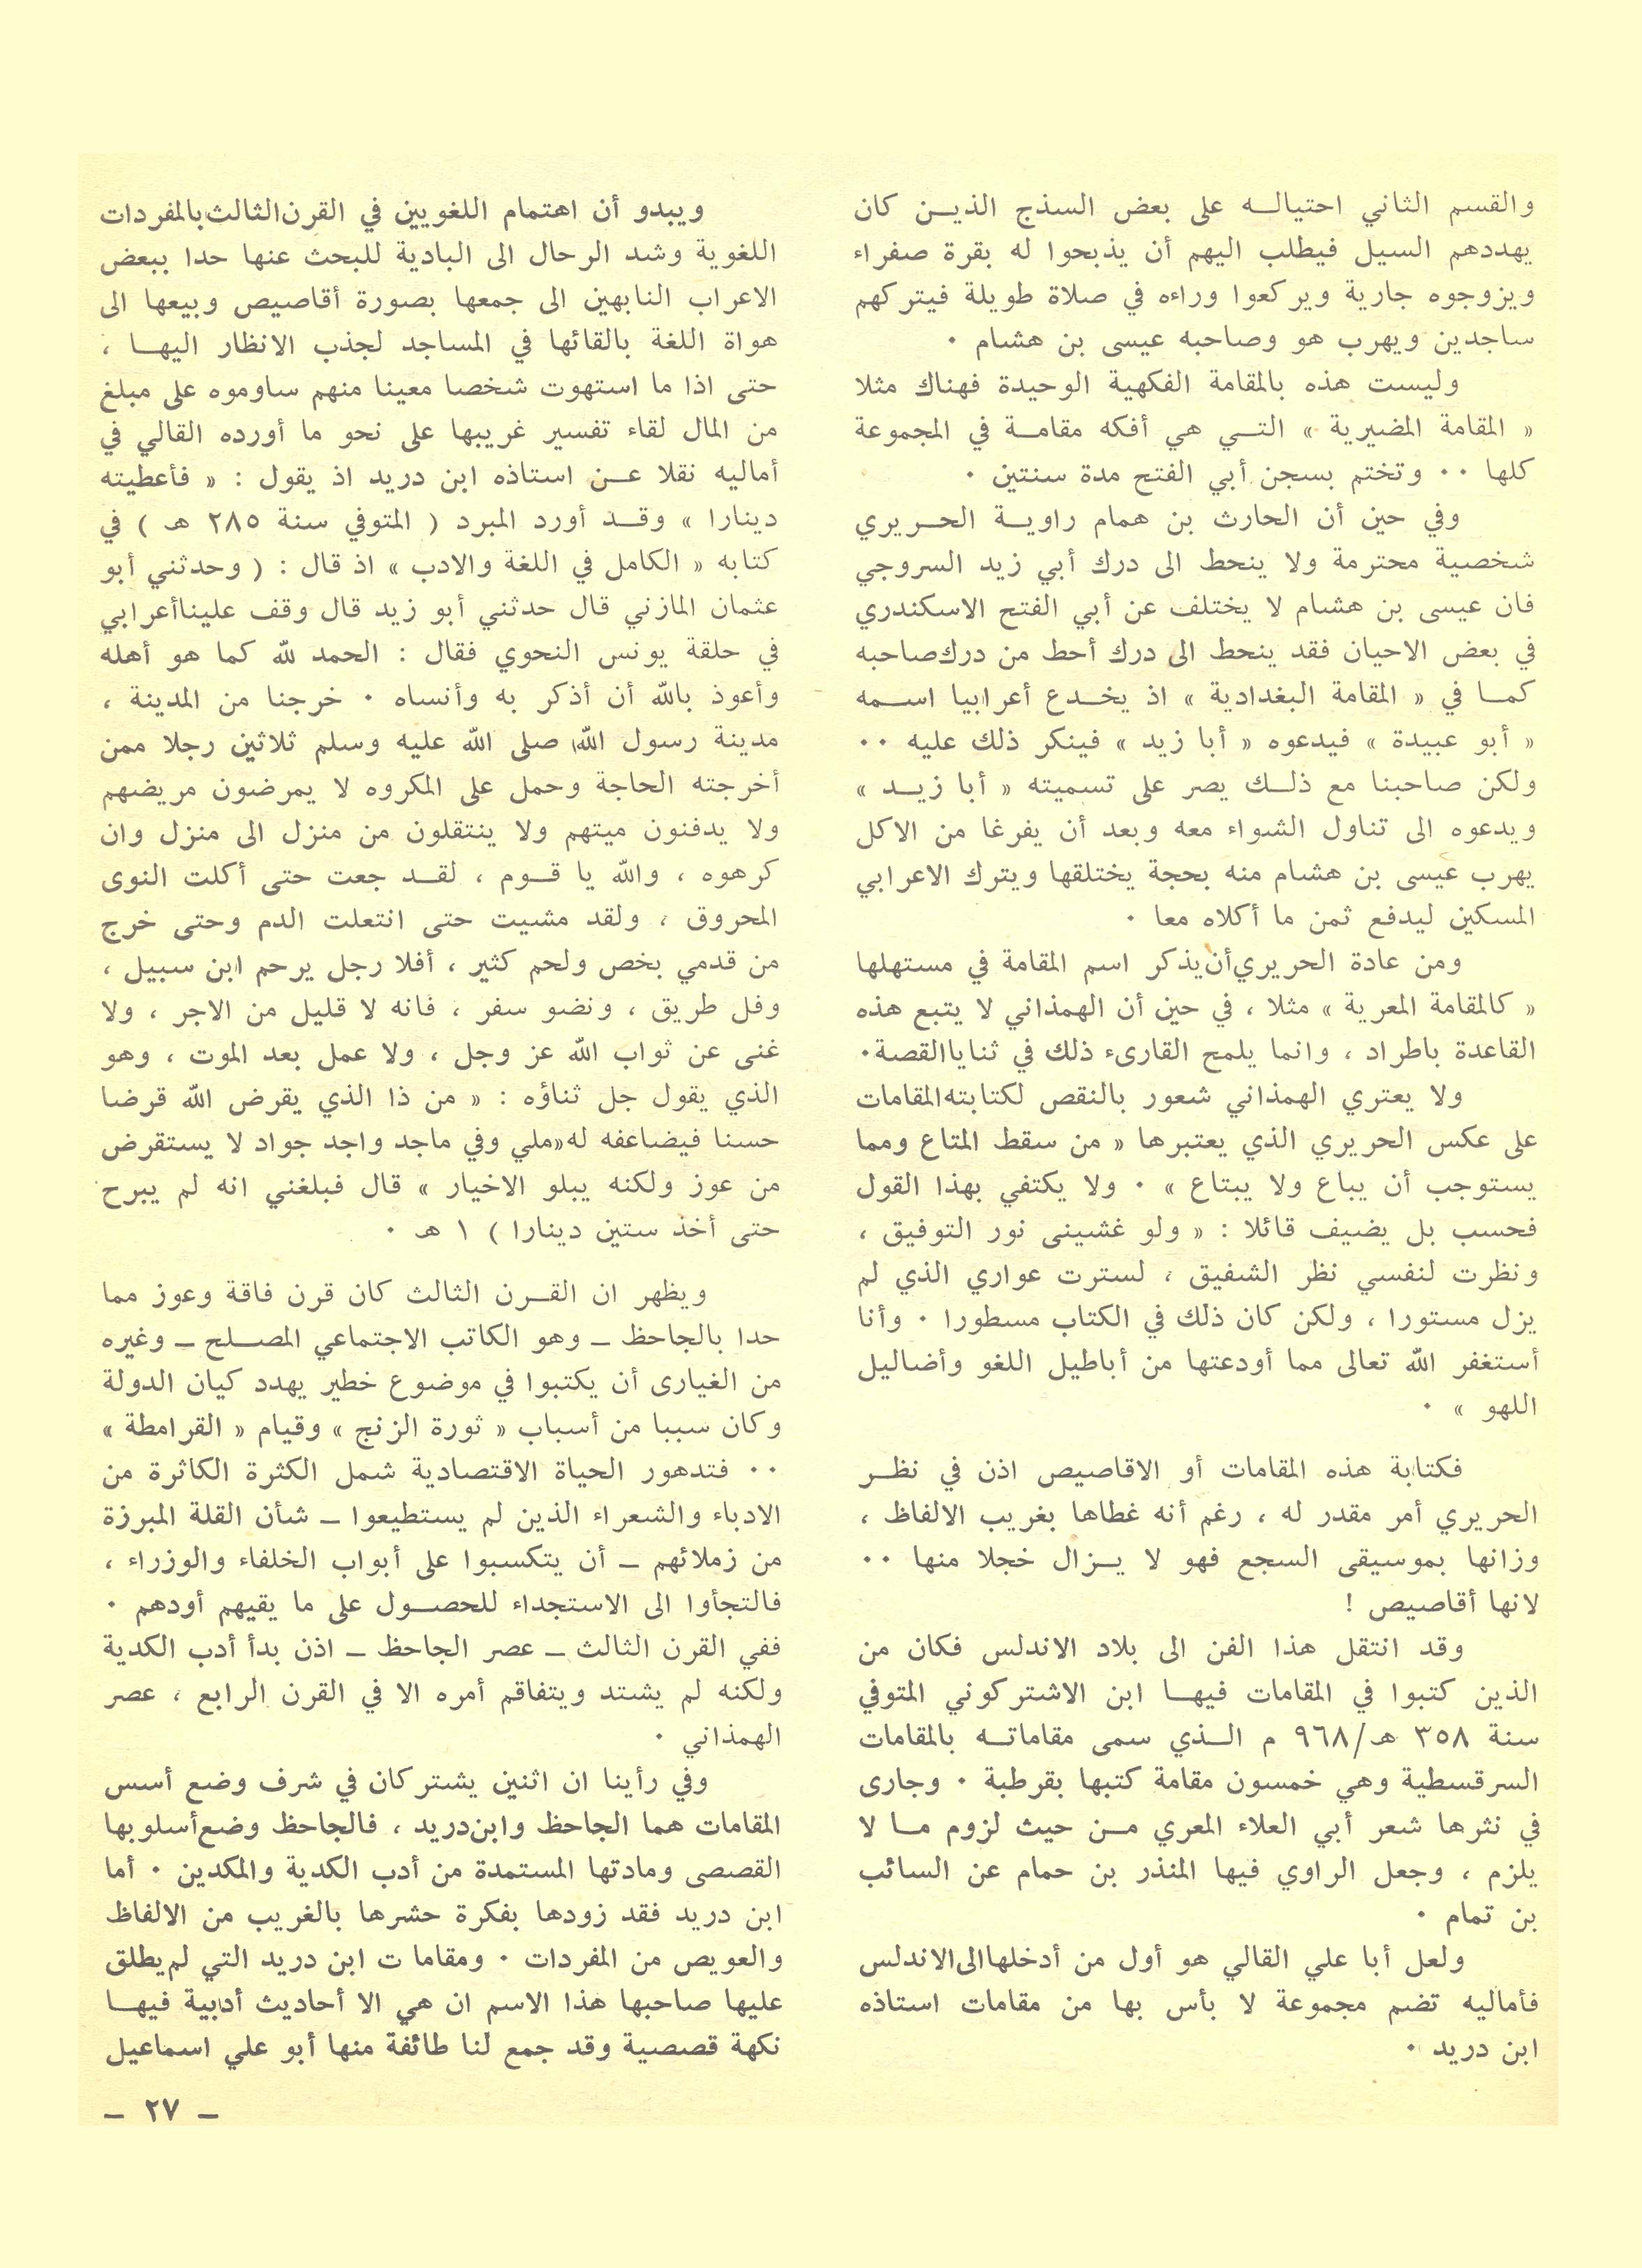 والقسم الثاني احتياله على بعض السذج الذين كان
يهددهم السيل فيطلب اليهم أن يذبحوا له بقرة صفراء
ويزوجوه جارية ويركعوا وراءه في صلاة طويلة فيتركهم
ساجدين ويهرب هو وصاحبه عيسى بن هشام ٠
وليست هذه بالمقامة الفكهية الوحيدة فهناك مثلا
« المقامة المضيرية » التي هي أفكه مقامة في المجموعة
كلها ٠٠ وتختم بسجن أبي الفتح مدة سنتين ٠
وفي حين أن الحارث بن همام راوية الحريري
شخصية محترمة ولا ينحط الى درك أبي زيد السروجي
فان عيسى بن هشام لا يختلف عن أبي الفتح الاسكندري
في بعض الاحيان فقد ينحط الى درك أحط من درك صاحبه
كما في « المقامة البغدادية » اذ يخدع أعرابيا اسمه
« أبو عبيدة » فيدعوه « أبا زيد » فينكر ذلك عليه ٠٠
ولكن صاحبنا مع ذلك يصر على تسميته « أبا زيد »
ويدعوه الى تناول الشواء معه وبعد أن يفرغا من الاكل
يهرب عيسى بن هشام منه بحجة يختلقها ويترك الاعرابي
المسكين ليدفع ثمن ما أكلاه معا ٠
ومن عادة الحريري أن يذكر اسم المقامة في مستهلها
« كالمقامة المعرية » مثلا ، في حين أن الهمذاني لا يتبع هذه
القاعدة باطراد ، وانما يلمح القارىء ذلك في ثنايا القصة ٠
ولا يعتري الهمذاني شعور بالنقص لكتابته المقامات
على عكس الحريري الذي يعتبرها « من سقط المتاع ومما
يستوجب أن يباع ولا يبتاع » ٠ ولا يكتفي بهذا القول
فحسب بل يضيف قائلا : « ولو غشينى نور التوفيق ،
ونظرت لنفسي نظر الشفيق ، لسترت عواري الذي لم
يزل مستورا ، ولكن كان ذلك في الكتاب مسطورا ٠ وأنا
أستغفر الله تعالى مما أودعتها من أباطيل اللغو وأضاليل
اللهو » ٠
فكتابة هذه المقامات أو الاقاصيص اذن في نظر
الحريري أمر مقدر له ، رغم أنه غطاها بغريب الالفاظ ،
وزانها بموسيقى السجع فهو لا يزال خجلا منها ٠٠
لانها أقاصيص !
وقد انتقل هذا الفن الى بلاد الاندلس فكان من
الذين كتبوا في المقامات فيها ابن الاشتركوني المتوفي
سنة ٣٥٨ هـ/٩٦٨ م الذي سمى مقاماته بالمقامات
السرقسطية وهي خمسون مقامة كتبها بقرطبة ٠ وجارى
في نثرها شعر أبي العلاء المعري من حيث لزوم ما لا
يلزم ، وجعل الراوي فيها المنذر بن حمام عن السائب
بن تمام ٠
ولعل أبا علي القالي هو أول من أدخلها الى الاندلس
فأماليه تضم مجموعة لا بأس بها من مقامات استاذه
ابن دريد ٠
ويبدو أن اهتمام اللغويين في القرن الثالث بالمفردات
اللغوية وشد الرحال الى البادية للبحث عنها حدا ببعض
الاعراب النابهين الى جمعها بصورة أقاصيص وبيعها الى
هواة اللغة بالقائها في المساجد لجذب الانظار اليها ،
حتى اذا ما استهوت شخصا معينا منهم ساوموه على مبلغ
من المال لقاء تفسير غريبها على نحو ما أورده القالي في
أماليه نقلا عن استاذه ابن دريد اذ يقول : « فأعطيته
دينارا » وقد أورد المبرد ( المتوفي سنة ٢٨٥ هـ ) في
كتابه « الكامل في اللغة والادب » اذ قال : ( وحدثني أبو
عثمان المازني قال حدثني أبو زيد قال وقف علينا أعرابي
في حلقة يونس النحوي فقال : الحمد لله كما هو أهله
وأعوذ بالله أن أذكر به وأنساه ٠ خرجنا من المدينة ،
مدينة رسول الله صلى الله عليه وسلم ثلاثين رجلا ممن
أخرجته الحاجة وحمل على المكروه لا يمرضون مريضهم
ولا يدفنون ميتهم ولا ينتقلون من منزل الى منزل وان
كرهوه ، والله يا قوم ، لقد جعت حتى أكلت النوى
المحروق ، ولقد مشيت حتى انتعلت الدم وحتى خرج
من قدمي بخص ولحم كثير ، أفلا رجل يرحم ابن سبيل ،
وفل طريق ، ونضو سفر ، فانه لا قليل من الاجر ، ولا
غنى عن ثواب الله عز وجل ، ولا عمل بعد الموت ، وهو
الذي يقول جل ثناؤه : « من ذا الذي يقرض الله قرضا
حسنا فيضاعفه له » ملي وفي ماجد واجد جواد لا يستقرض
من عوز ولكنه يبلو الاخيار » قال فبلغني انه لم يبرح
حتى أخذ ستين دينارا ) ١ هـ ٠
ويظهر ان القرن الثالث كان قرن فاقة وعوز مما
حدا بالجاحظ – وهو الكاتب الاجتماعي المصلح – وغيره
من الغيارى أن يكتبوا في موضوع خطير يهدد كيان الدولة
وكان سببا من أسباب « ثورة الزنج » وقيام « القرامطة »
٠٠ فتدهور الحياة الاقتصادية شمل الكثرة الكاثرة من
الادباء والشعراء الذين لم يستطيعوا – شأن القلة المبرزة
من زملائهم – أن يتكسبوا على أبواب الخلفاء والوزراء ،
فالتجأوا الى الاستجداء للحصول على ما يقيهم أودهم ٠
ففي القرن الثالث – عصر الجاحظ – اذن بدأ أدب الكدية
ولكنه لم يشتد ويتفاقم أمره الا في القرن الرابع ، عصر
الهمذاني ٠
وفي رأينا ان اثنين يشتركان في شرف وضع أسس
المقامات هما الجاحظ وابن دريد ، فالجاحظ وضع أسلوبها
القصصى ومادتها المستمدة من أدب الكدية والمكدين ٠ أما
ابن دريد فقد زودها بفكرة حشرها بالغريب من الالفاظ
والعويص من المفردات ٠ ومقاما ت ابن دريد التي لم يطلق
عليها صاحبها هذا الاسم ان هي الا أحاديث أدبية فيها
نكهة قصصية وقد جمع لنا طائفة منها أبو علي اسماعيل
– ٢٧ –